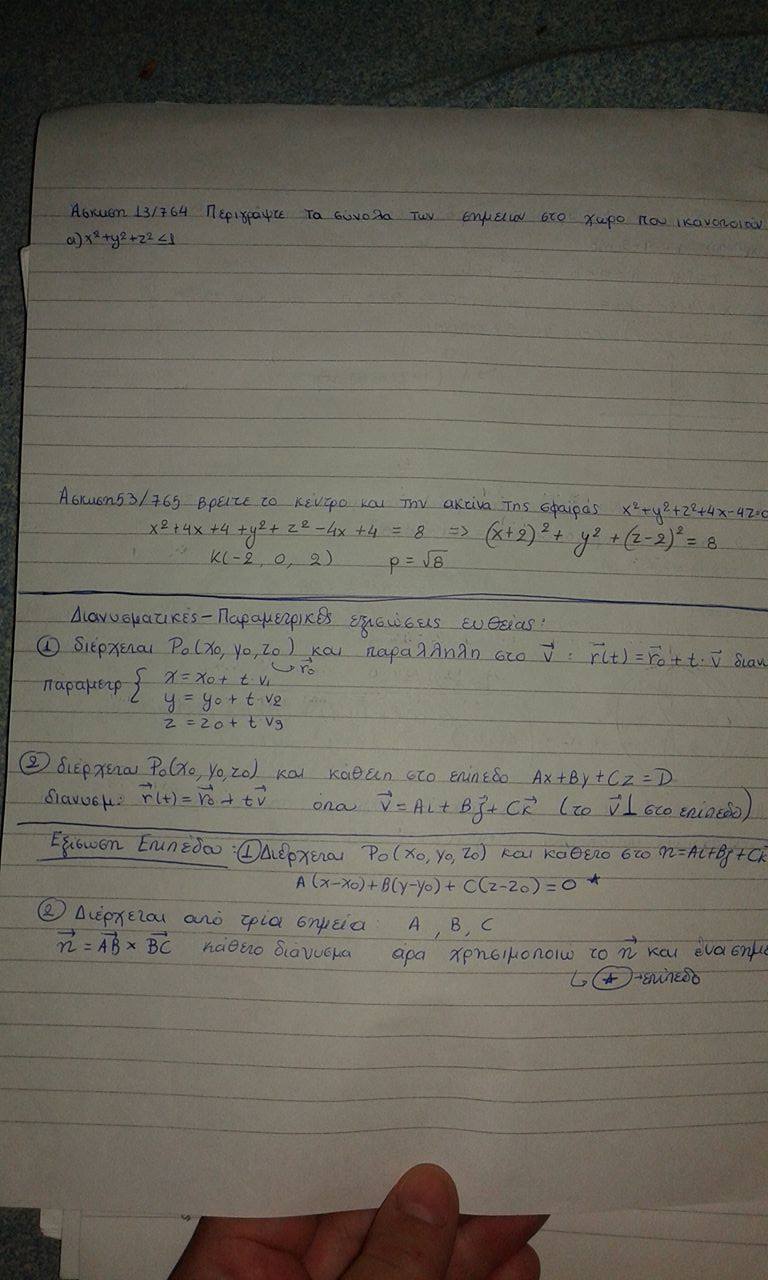 Άσκηση 13/764 Περιγράψτε τα συνολα των σημειων στο χωρο που ικανοποιούν
α) x²+y²+z² ≤ 1
Άσκηση 53/765 βρειτε το κέντρο και την ακτίνα της σφαίρας x²+y²+z²+4x-4z=0
x²+4x+4+y²+z²-4x+4 = 8 => (x+2)²+ y²+(z-2)²= 8
K(-2, 0, 2) ρ=√8
Διανυσματικές-Παραμετρικές εξισώσεις ευθείας:
① διέρχεται P₀(x₀, y₀, z₀) και παράλληλη στο v⃗ : r⃗(t)=r⃗₀+t·v⃗ διαν
↪ r⃗₀
παραμετρ { x = x₀ + t v₁
y = y₀ + t v₂
z = z₀ + t v₃
② διέρχεται P₀(x₀, y₀, z₀) και κάθετη στο επίπεδο Ax+By+Cz=D
διανυσμ: r⃗(t)=r⃗₀+tv⃗ όπου v⃗=Ai+Bj⃗+Ck⃗ (το v⃗⊥ στο επίπεδο)
Εξίσωση Επιπέδου: ① Διέρχεται P₀(x₀, y₀, z₀) και κάθετο στο n=Ai+Bj+Ck
A(x-x₀)+B(y-y₀)+C(z-z₀)=0 *
② Διέρχεται από τρία σημεία: A, B, C
n⃗ = AB⃗ × BC⃗ κάθετο διάνυσμα αρα χρησιμοποιω το n⃗ και ένα σημε
↳ (*)→επίπεδο